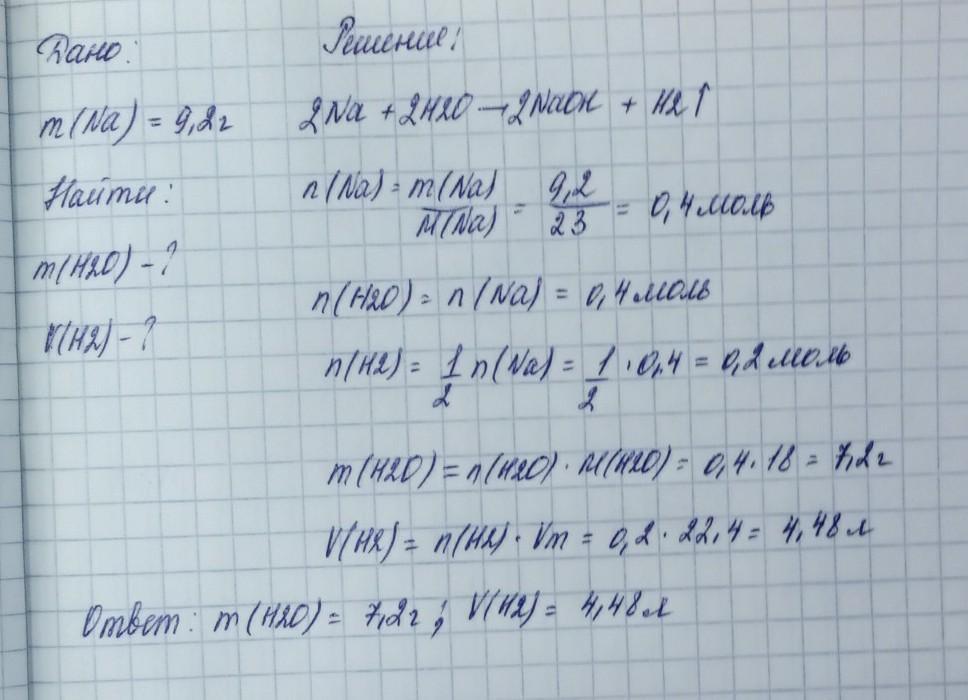 Дано: Решение:
m(Na) = 9,2г 2Na + 2H2O → 2NaOH + H2↑
Найти: n(Na) = m(Na)/M(Na) = 9,2/23 = 0,4 моль
m(H2O) - ?
n(H2O) = n(Na) = 0,4 моль
V(H2) - ?
n(H2) = 1/2 n(Na) = 1/2 · 0,4 = 0,2 моль
m(H2O) = n(H2O) · M(H2O) = 0,4 · 18 = 7,2г
V(H2) = n(H2) · Vm = 0,2 · 22,4 = 4,48 л
Ответ: m(H2O) = 7,2г ; V(H2) = 4,48 л